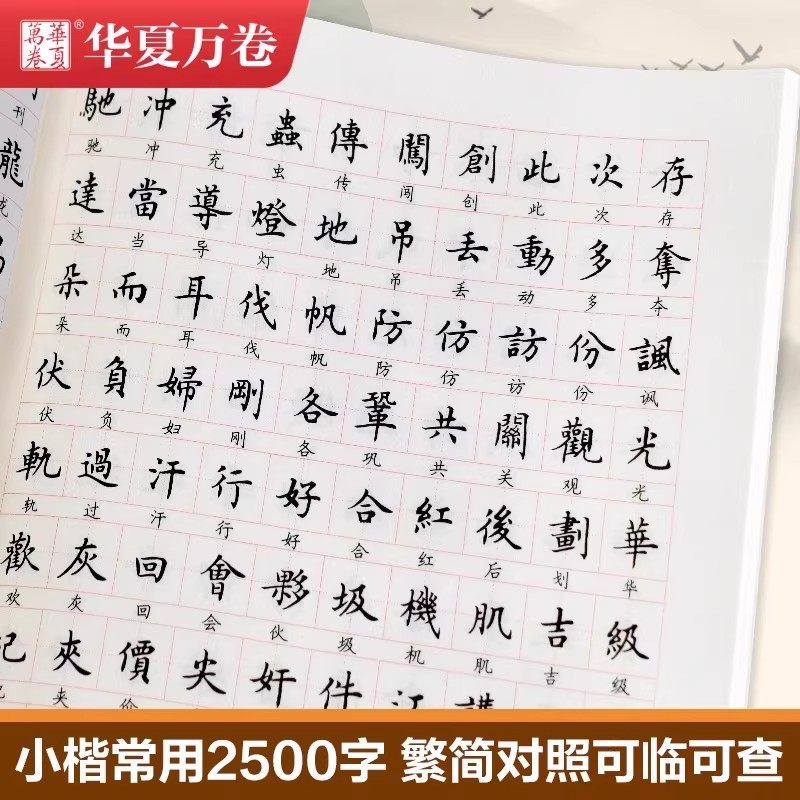 華夏萬卷® 华夏万卷
刊
龍
龙
馳 冲 充 蟲 傳 闖 創 此 次 存
驰 冲 充 虫 传 闯 创 此 次 存
達 當 導 燈 地 吊 丢 動 多 奪
达 当 导 灯 地 吊 丢 动 多 夺
朵 而 耳 伐 帆 防 仿 訪 份 諷
朵 而 耳 伐 帆 防 仿 访 份 讽
伏 負 婦 剛 各 鞏 共 關 觀 光
伏 负 妇 刚 各 巩 共 关 观 光
軌 過 汗 行 好 合 紅 後 劃 華
轨 过 汗 行 好 合 红 后 划 华
歡 灰 回 會 夥 圾 機 肌 吉 級
欢 灰 回 会 伙 圾 机 肌 吉 级
夾 價 尖 奸 件 江 講
夹 价
小楷常用2500字 繁简对照可临可查